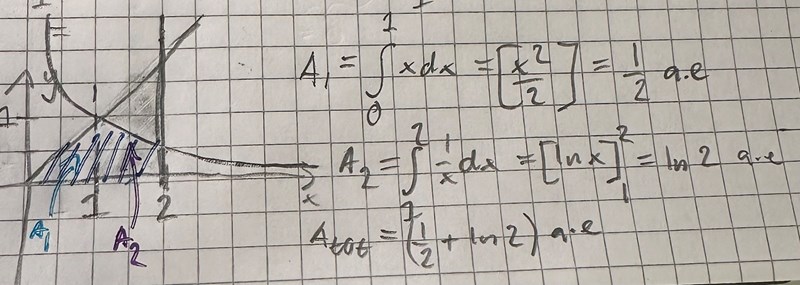 y
1
1
2
x
A₁
A₂
A₁ = ∫₀¹ x dx = [x²/2] = 1/2 a.e
A₂ = ∫₁² 1/x dx = [ln x]₁² = ln 2 a.e
Atot = (1/2 + ln 2) a.e